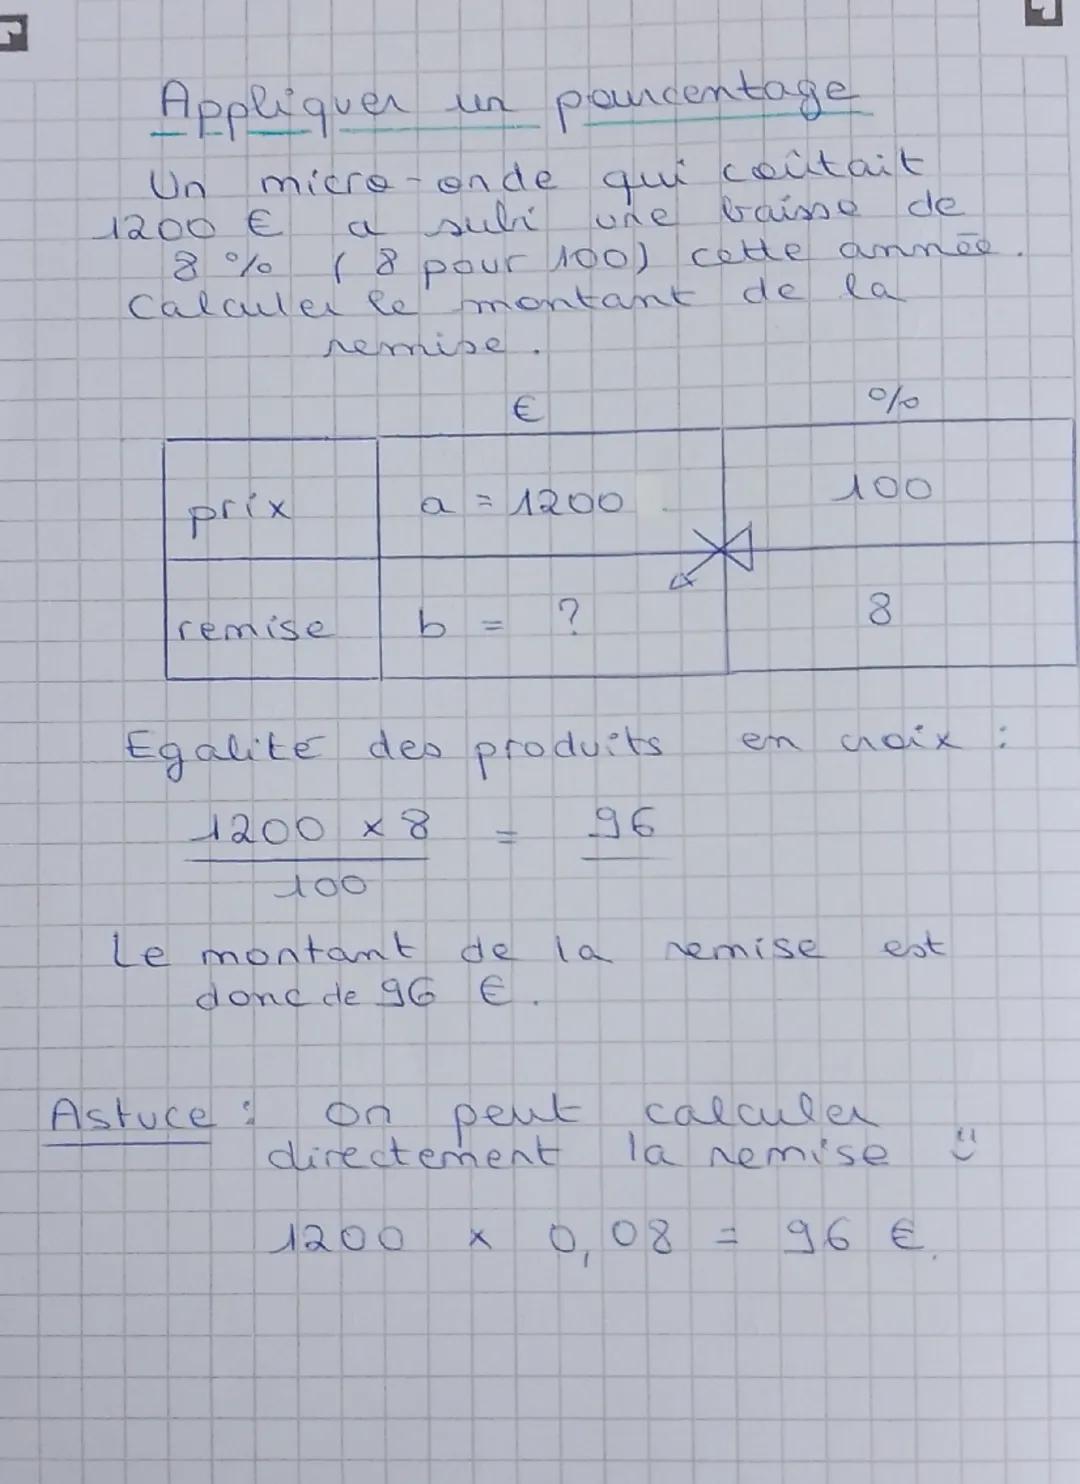 Appliquer un pourcentage
Un micro-onde qui coûtait
1200 € a subi une baisse de
8 % ( 8 pour 100) cette année.
Calculer le montant de la
remise.
€ %
prix a = 1200 100
remise b = ? 8
Egalité des produits en croix :
1200 × 8 = 96
100
Le montant de la remise est
donc de 96 €.
Astuce : On peut calculer
directement la remise
1200 × 0,08 = 96 €.